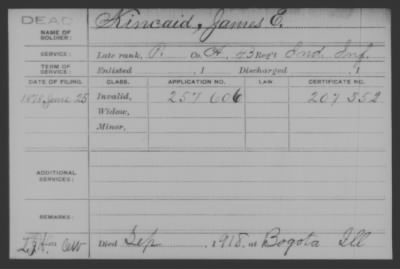 DEAD
NAME OF SOLDIER: Kincaid, James E.
SERVICE: Late rank, P. Co. H, 43 Reg't Ind. Inf.
TERM OF SERVICE: Enlisted , 1 Discharged , 1
DATE OF FILING. CLASS. APPLICATION NO. LAW CERTIFICATE NO.
1878 June 25 Invalid, 257 606 207 552
Widow,
Minor,
ADDITIONAL SERVICES:
REMARKS:
Died Sep , 1918, at Bogota Ill